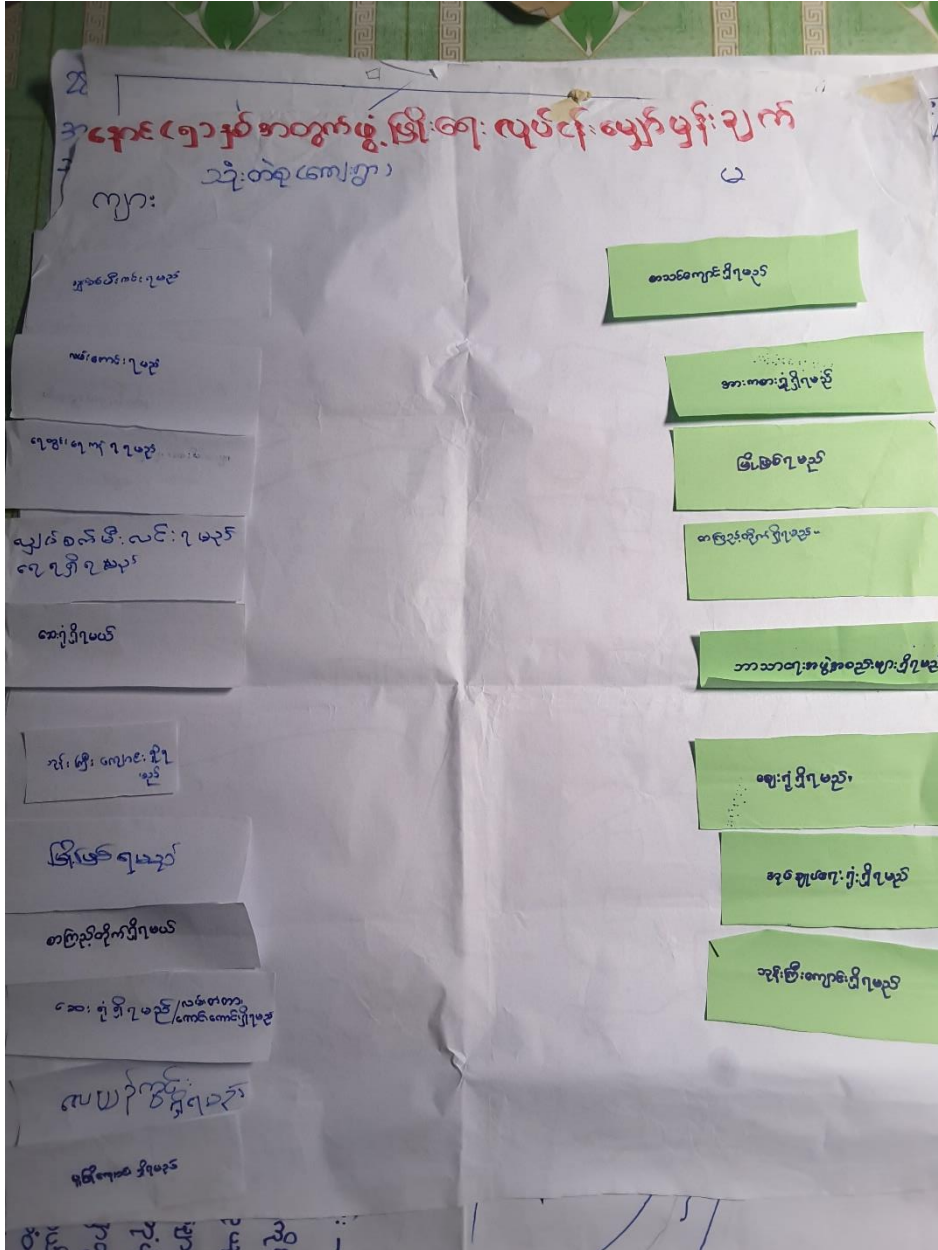 အနောင်(၅)နှစ်အတွက်ဖွံ့ဖြိုးရေး လုပ်ငန်းမျှော်မှန်းချက်
သုံးတဲစု(ကျေးရွာ)
ကျား
မ
လမ်းကောင်းရမည်
ရေတွင်းရေကန်ရရမည်
လျှပ်စစ်မီးလင်းရမည်
ရေရရှိရမည်
ဆေးရုံရှိရမယ်
ဘုန်းကြီးကျောင်းရှိရ
မည်
မြို့ဖြစ်ရမည်
စာကြည့်တိုက်ရှိရမယ်
ဆေးရုံရှိရမည်/လမ်းတံတား
ကောင်းကောင်းရှိရမည်
လေယာဉ်ကွင်း
ရှိရမည်
စာသင်ကျောင်းရှိရမည်
အားကစားရုံရှိရမည်
မြို့ဖြစ်ရမည်
စာကြည့်တိုက်ရှိရမည်။
ဘာသာရေးအဖွဲ့အစည်းများရှိရမည်
ဈေးရုံရှိရမည်။
အုပ်ချုပ်ရေးရုံးရှိရမည်
ဘုန်းကြီးကျောင်းရှိရမည်